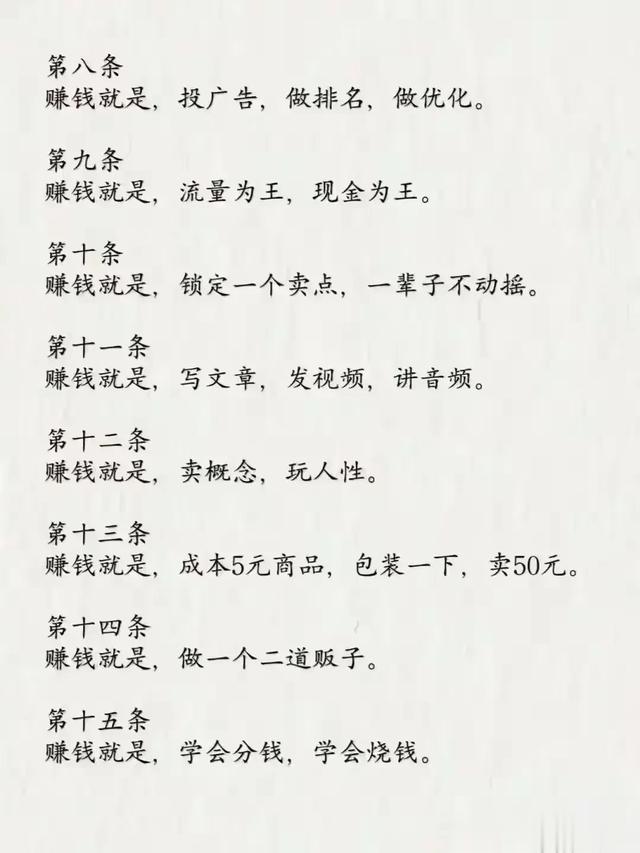 第八条
赚钱就是，投广告，做排名，做优化。
第九条
赚钱就是，流量为王，现金为王。
第十条
赚钱就是，锁定一个卖点，一辈子不动摇。
第十一条
赚钱就是，写文章，发视频，讲音频。
第十二条
赚钱就是，卖概念，玩人性。
第十三条
赚钱就是，成本5元商品，包装一下，卖50元。
第十四条
赚钱就是，做一个二道贩子。
第十五条
赚钱就是，学会分钱，学会烧钱。